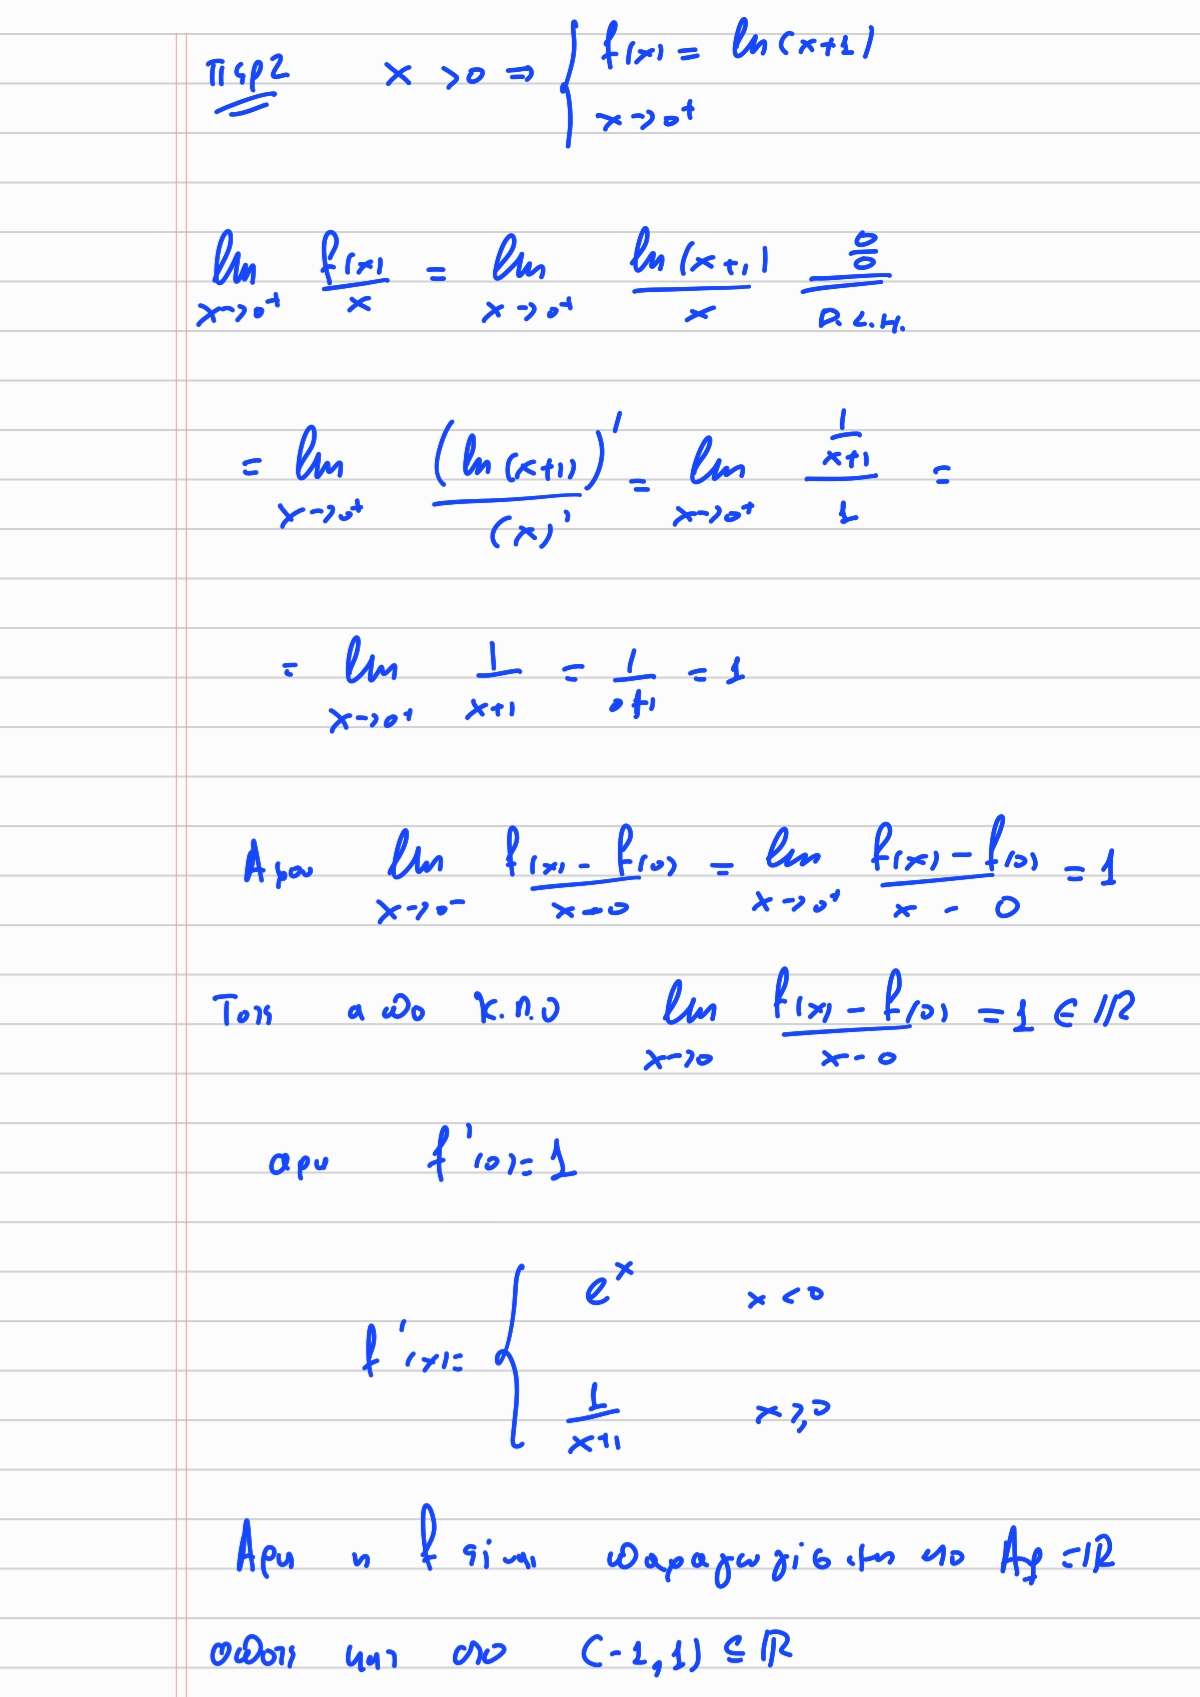 Περ2 x > 0 ⇒ { f(x) = ln(x+1)
x→0⁺
lim x→0⁺ f(x)/x = lim x→0⁺ ln(x+1)/x =(0/0, D.L.H.)
= lim x→0⁺ (ln(x+1))'/(x)' = lim x→0⁺ (1/(x+1))/1 =
= lim x→0⁺ 1/(x+1) = 1/(0+1) = 1
Άρα lim x→0⁻ (f(x) - f(0))/(x-0) = lim x→0⁺ (f(x) - f(0))/(x - 0) = 1
Τότε από κ.π.ο lim x→0 (f(x) - f(0))/(x-0) = 1 ∈ ℝ
αρα f'(0) = 1
f'(x) = { e^x x < 0
1/(x+1) x ≥ 0
Αρα η f είναι παραγωγίσιμη στο Af = ℝ
οπότε και στο (-1,1) ⊆ ℝ